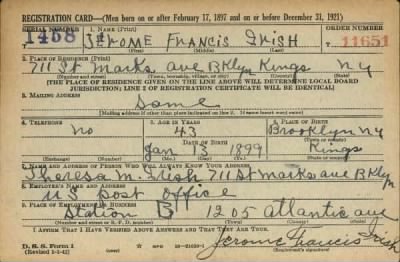 REGISTRATION CARD—(Men born on or after February 17, 1897 and on or before December 31, 1921)
SERIAL NUMBER 1. NAME (Print) ORDER NUMBER
1458 JEROME FRANCIS IRISH 11651
(First) (Middle) (Last)
2. PLACE OF RESIDENCE (Print)
711 St Marks ave BKlyn Kings NY
(Number and street) (Town, township, village, or city) (County) (State)
[THE PLACE OF RESIDENCE GIVEN ON THE LINE ABOVE WILL DETERMINE LOCAL BOARD
JURISDICTION; LINE 2 OF REGISTRATION CERTIFICATE WILL BE IDENTICAL]
3. MAILING ADDRESS
Same
(Mailing address if other than place indicated on line 2. If same insert word same)
4. TELEPHONE 5. AGE IN YEARS 6. PLACE OF BIRTH
no 43 Brooklyn NY
DATE OF BIRTH (Town or county)
Jan 13 1899 Kings
(Exchange) (Number) (Mo.) (Day) (Yr.) (State or country)
7. NAME AND ADDRESS OF PERSON WHO WILL ALWAYS KNOW YOUR ADDRESS
Theresa M. Irish 711 St Marks ave BKlyn
8. EMPLOYER'S NAME AND ADDRESS
US Post Office
9. PLACE OF EMPLOYMENT OR BUSINESS
Station B 1205 atlantic ave
(Number and street or R. F. D. number) (Town) (County) (State)
I AFFIRM THAT I HAVE VERIFIED ABOVE ANSWERS AND THAT THEY ARE TRUE.
D. S. S. Form 1
(Revised 1-1-42) (over) Jerome Francis Irish
(Registrant's signature)